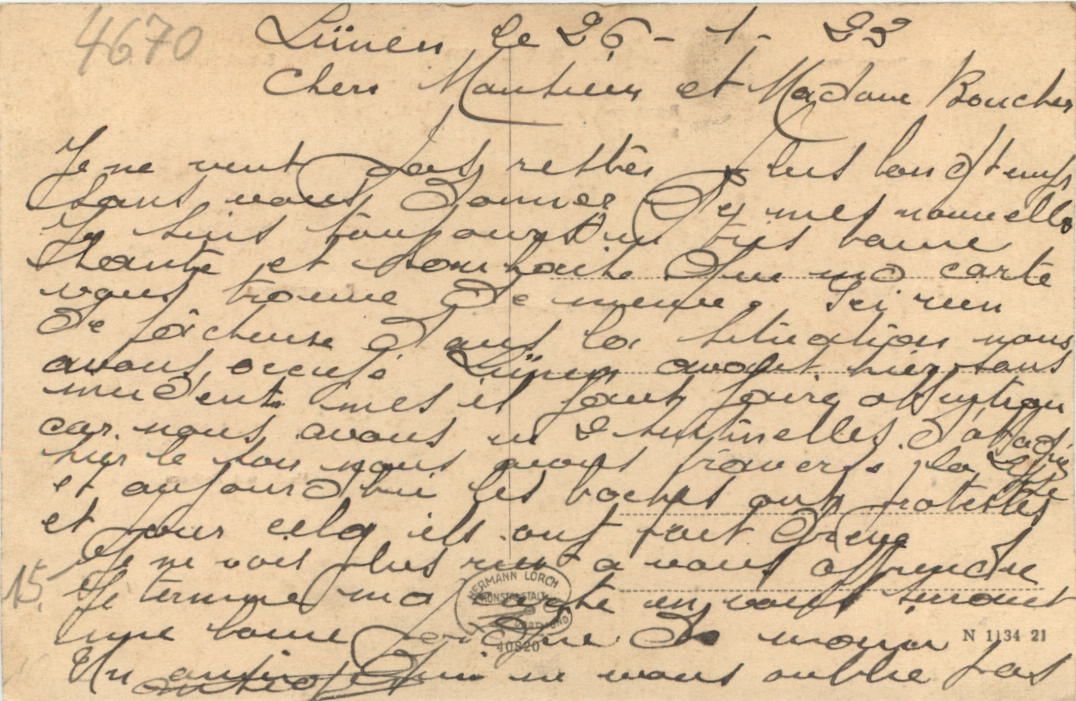 4670
Lünen le 26 - 1 - 23
Chers Monsieur et Madame Boucher
Je ne veut pas restér plus longtemps
sans vous donner d mes nouvelle
Je suis toujours en tres bonne
Santé et souhaite que ma carte
vous trouve de meme. Ici rien
de fâcheuse dans la situation nous
avons occupé Lünen avant hier sans
mes il faut faire attention
car nous avons u 2 sentinelles d'
hier le soir nous avons traversé la Lippe
et aujourd'hui les boches ont protestés
et pour cela ils ont fait Greve
Je ne voit plus rien a vous apprendre
15.
Je termine ma carte en vous serrant
une bonne poigne de main
Un ami qui ne vous oublie pas
HERMANN LORCH
KUNSTANSTALT
DORTMUND
40820
N 1134 21